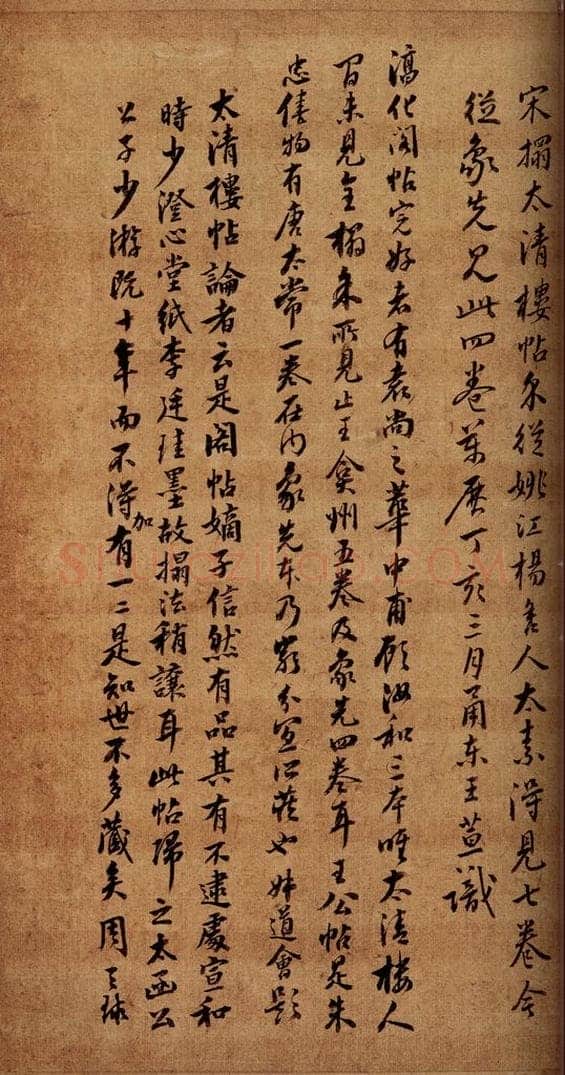 宋搨太清樓帖余從姚江楊舍人太素得見七卷今
從象先見此四卷萬曆丁亥三月甬東王萱識
淳化閣帖完好者有袁尚之華中甫顧汝和三本唯太清樓人
間未見全搨余所見止王弇州五卷及象先四卷耳王公帖是朱
忠僖物有唐太常一卷在內象先本乃嚴分宜所藏也 道會
太清樓帖論者云是閣帖嫡子信然有品其有不逮處宣和
時少澄心堂紙李廷珪墨故搨法稍讓耳此帖歸之太函公
公子少游既十年而不得加有一二是知世不多藏矣周天球
SHUFAZIDIAN.COM